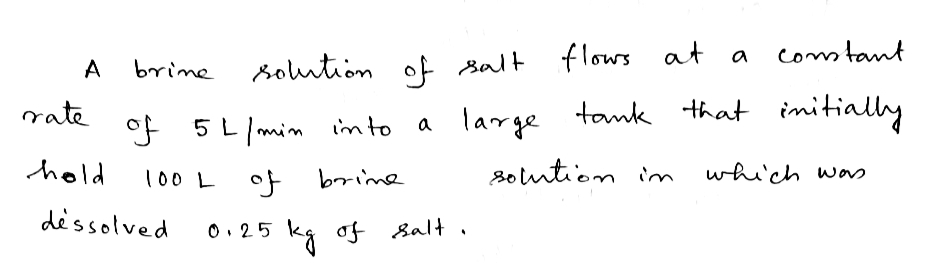 A brine solution of salt flows at a constant
rate of 5 L/min into a large tank that initially
hold 100 L of brine solution in which was
dissolved 0.25 kg of salt.